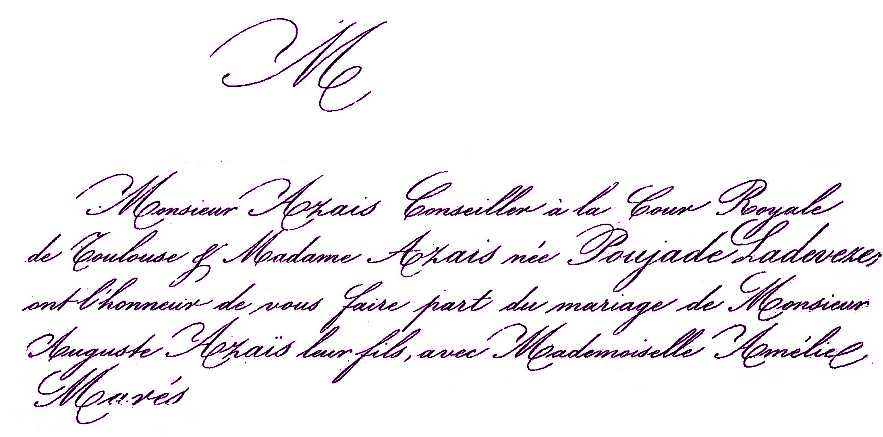 M
Monsieur Azais Conseiller à la Cour Royale
de Toulouse & Madame Azais née Poujade Ladeveze,
ont l'honneur de vous faire part du mariage de Monsieur
Auguste Azaïs leur fils, avec Mademoiselle Amélie
Marés